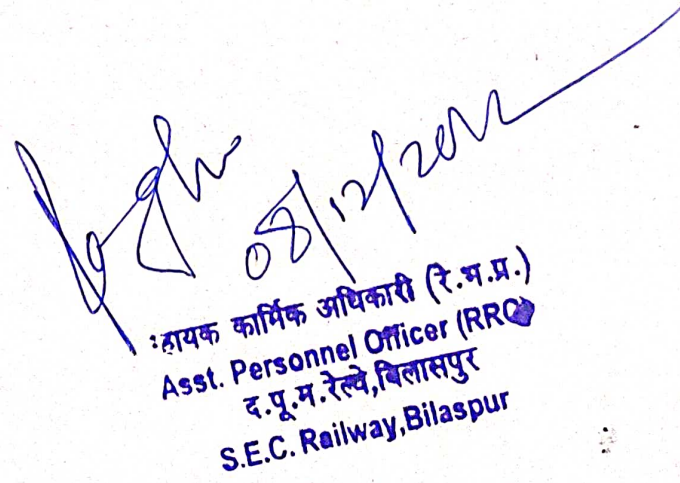 08/12/2012
:हायक कार्मिक अधिकारी (रे.भ.प्र.)
Asst. Personnel Officer (RRC)
द.पू.म.रेल्वे,बिलासपुर
S.E.C. Railway,Bilaspur